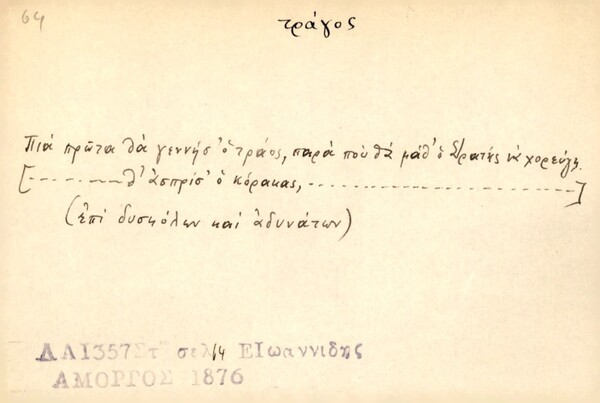 64
τράγος
Πιά πρῶτα θά γεννήσ' ὁ τράος, παρά πού θά μάθ' ὁ Στρατής νά χορεύγῃ.
[- - - - - - - θ' ἀσπρίσ' ὁ κόρακας, - - - - - - - - - - - - - - - - - -]
(ἐπί δυσκόλων καί ἀδυνάτων)
ΛΑ1357Στ' σελ 14 ΕΙωαννιδης
ΑΜΟΡΓΟΣ 1876